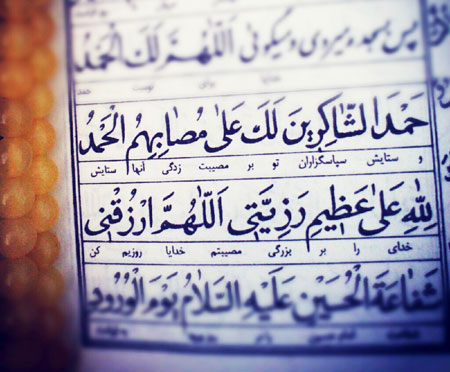 پس بسجده میروی و میگوئی اَللّهُمَّ لَكَ الْحَمْدُ
خدایا برای توست حمد
حَمْدَ الشّاكِرينَ لَكَ عَلى مُصابِهِمْ اَلْحَمْدُ
و ستایش سپاسگزاران تو بر مصیبت زدگی آنها ستایش
لِلّهِ عَلى عَظيمِ رَزِيَّتي اَللّهُمَّ ارْزُقْني
خدای را بر بزرگی مصیبتم خدایا روزیم کن
شَفاعَةَ الْحُسَيْنِ عَلَيْهِ السَّلامُ يَوْمَ الْوُرُودِ
شفاعت